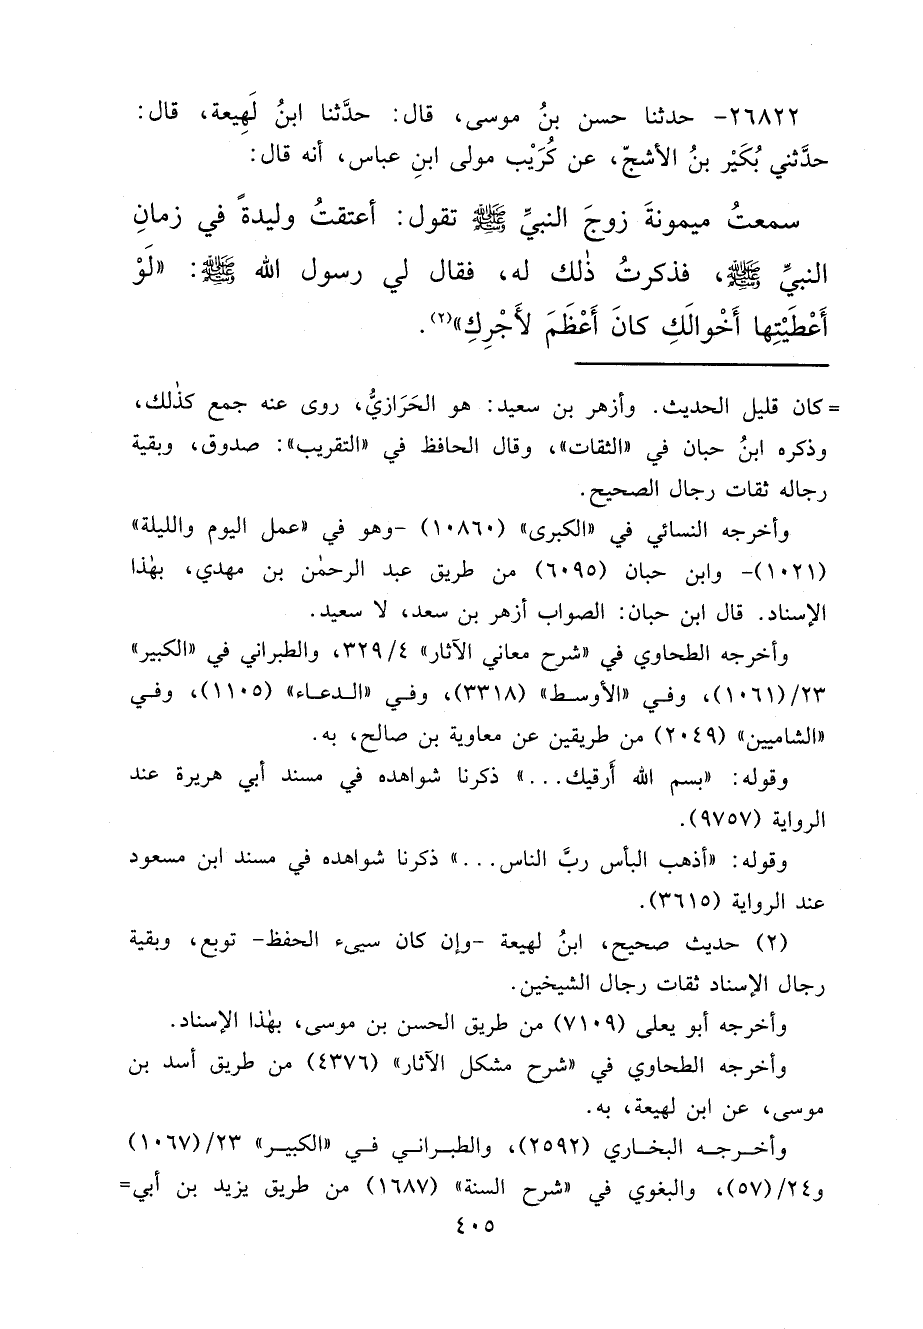 ٢٦٨٢٢- حدثنا حسن بنُ موسى، قال: حدَّثنا ابنُ لَهِيعة، قال:
حدَّثني بُكَيْر بنُ الأشجّ، عن كُرَيْب مولى ابنِ عباس، أنه قال:
سمعتُ ميمونةَ زوجَ النبيِّ ﷺ تقول: أعتقتُ وليدةً في زمانِ
النبيِّ ﷺ، فذكرتُ ذٰلك له، فقال لي رسول الله ﷺ: «لَوْ
أَعْطَيْتِها أَخْوالَكِ كانَ أَعْظَمَ لأَجْرِكِ»(٢).
= كان قليل الحديث. وأزهر بن سعيد: هو الحَرَازيُّ، روى عنه جمع كذٰلك،
وذكره ابنُ حبان في «الثقات»، وقال الحافظ في «التقريب»: صدوق، وبقية
رجاله ثقات رجال الصحيح.
وأخرجه النسائي في «الكبرى» (١٠٨٦٠) -وهو في «عمل اليوم والليلة»
(١٠٢١)- وابن حبان (٦٠٩٥) من طريق عبد الرحمٰن بن مهدي، بهٰذا
الإسناد. قال ابن حبان: الصواب أزهر بن سعد، لا سعيد.
وأخرجه الطحاوي في «شرح معاني الآثار» ٣٢٩/٤، والطبراني في «الكبير»
٢٣/(١٠٦١)، وفي «الأوسط» (٣٣١٨)، وفي «الدعاء» (١١٠٥)، وفي
«الشاميين» (٢٠٤٩) من طريقين عن معاوية بن صالح، به.
وقوله: «بسم الله أَرقيك...» ذكرنا شواهده في مسند أبي هريرة عند
الرواية (٩٧٥٧).
وقوله: «أذهب البأس ربَّ الناس...» ذكرنا شواهده في مسند ابن مسعود
عند الرواية (٣٦١٥).
(٢) حديث صحيح، ابنُ لهيعة -وإن كان سيىء الحفظ- توبع، وبقية
رجال الإسناد ثقات رجال الشيخين.
وأخرجه أبو يعلى (٧١٠٩) من طريق الحسن بن موسى، بهٰذا الإسناد.
وأخرجه الطحاوي في «شرح مشكل الآثار» (٤٣٧٦) من طريق أسد بن
موسى، عن ابن لهيعة، به.
وأخرجه البخاري (٢٥٩٢)، والطبراني في «الكبير» ٢٣/(١٠٦٧)
و٢٤/(٥٧)، والبغوي في «شرح السنة» (١٦٨٧) من طريق يزيد بن أبي=
٤٠٥